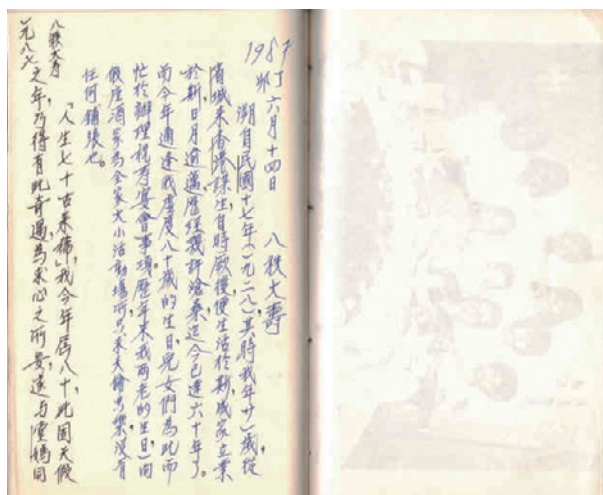 1987
卯丁 六月十四日　八秩大壽
溯自民國十七年(一九二八)其時我年廿一歲，從
省城來香港謀生自時厥後便生活於斯，成家立業
於斯，日月逾邁歷經幾許滄桑，迄今已達六十年了。
而今年適逢我虛度八十歲的生日，兒女們為此而
忙於辦理祝壽宴會事項，歷年來我兩老的生日，間
假座酒家為全家大小活動場所，只求天倫之樂，沒有
任何鋪張也。
「人生七十古來稀，」我今年屆八十，此固天假
之年，乃得有此奇遇，為求心之所安，遂与雲媽同
八秩大寿
一九八七